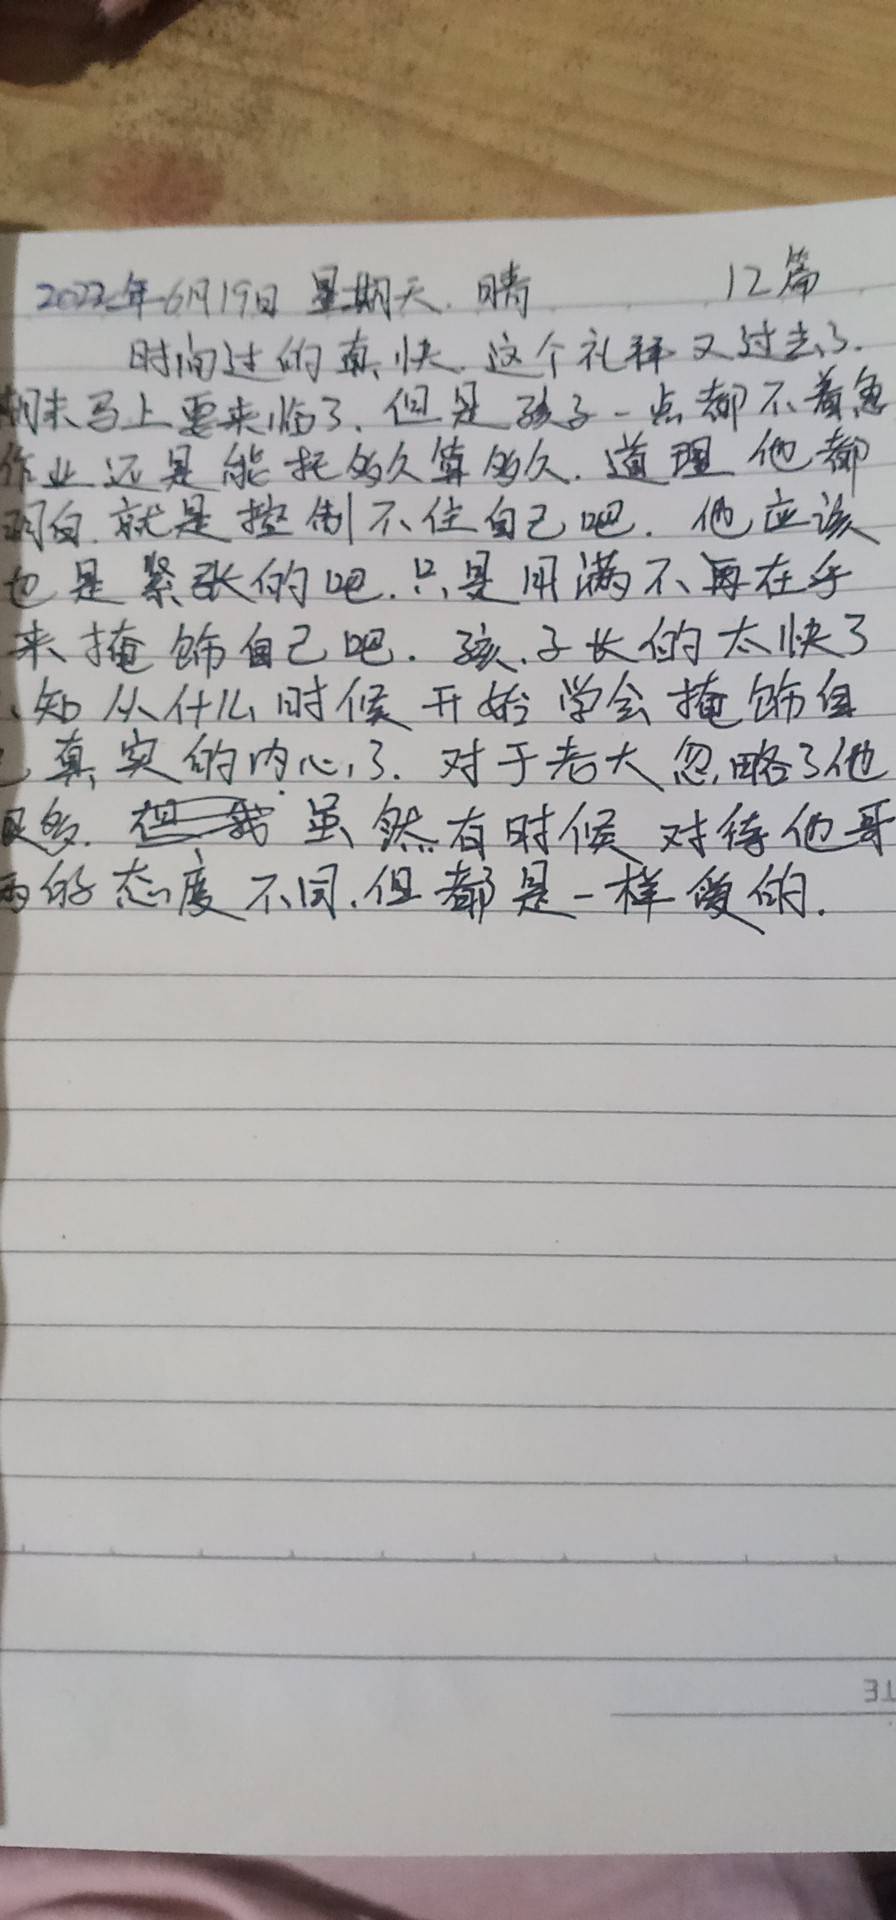 2022年6月19日 星期天. 晴 12篇
时间过的真快.这个礼拜又过去了.
期末马上要来临了.但是孩子一点都不着急
作业还是能托多久算多久.道理他都
明白.就是控制不住自己吧.他应该
也是紧张的吧.只是用满不再在乎
来掩饰自己吧.孩子长的太快了
不知从什么时候开始学会掩饰自
己真实的内心了.对于老大忽略了他
很多.但我虽然有时候对待他哥
两的态度不同.但都是一样爱的.
TE